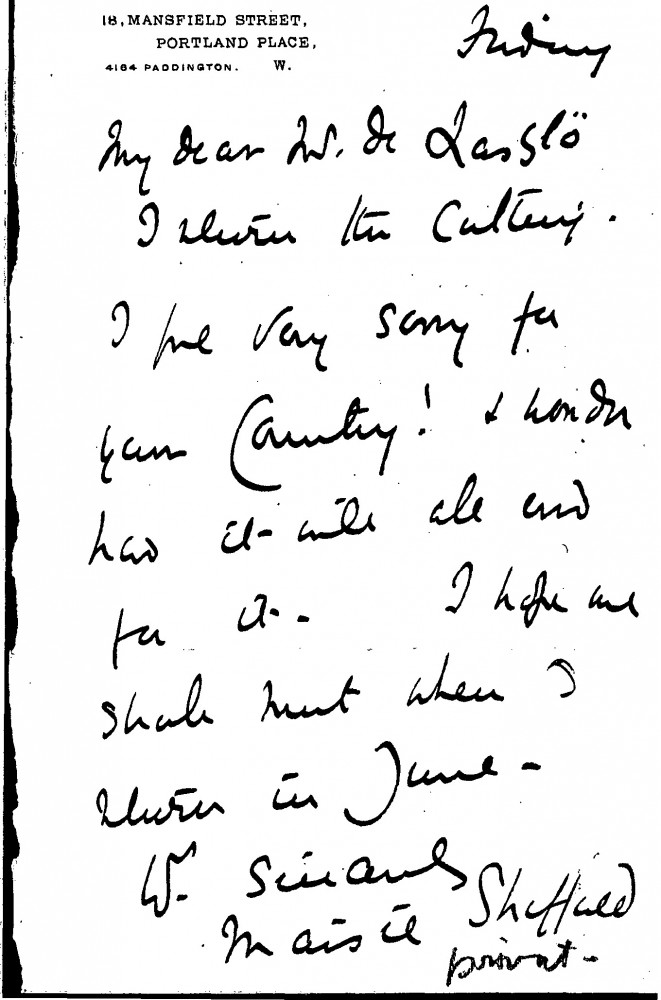 18, MANSFIELD STREET,
PORTLAND PLACE,
4164 PADDINGTON. W.
Friday
My dear Mr. de Laszlö
I return the Cutting.
I feel very sorry for
your Country! & wonder
how it will all end
for it - I hope we
shall meet when I
return in June -
Sincerely
Sheffield
privat -